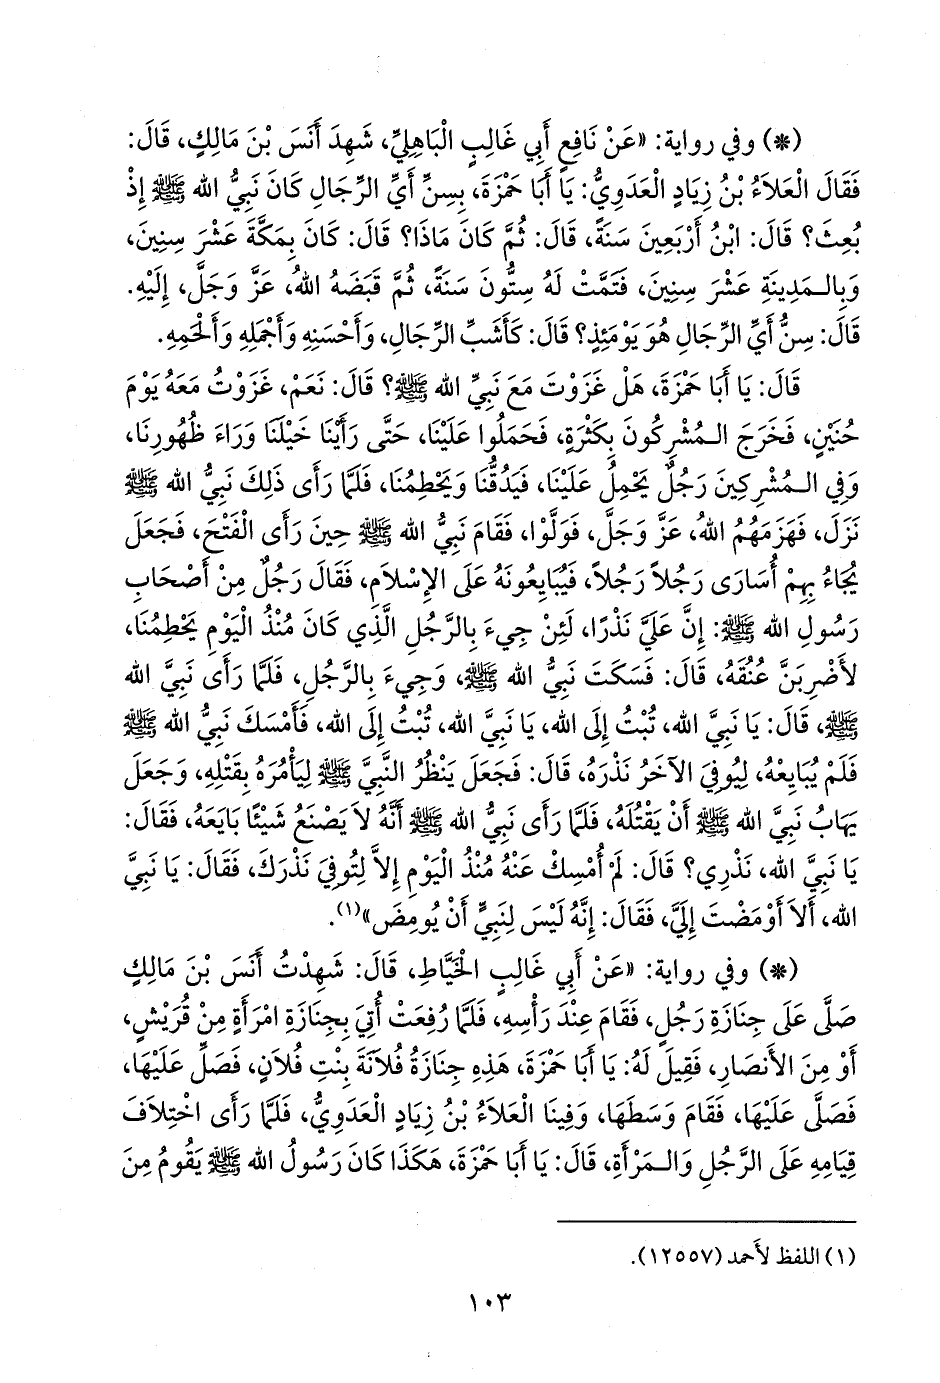 (*) وفي رواية: «عَنْ نَافِعٍ أَبِي غَالِبٍ الْبَاهِلِيِّ، شَهِدَ أَنَسَ بْنَ مَالِكٍ، قَالَ:
فَقَالَ الْعَلَاءُ بْنُ زِيَادٍ الْعَدَوِيُّ: يَا أَبَا حَمْزَةَ، بِسِنِّ أَيِّ الرِّجَالِ كَانَ نَبِيُّ الله ﷺ إِذْ
بُعِثَ؟ قَالَ: ابْنُ أَرْبَعِينَ سَنَةً، قَالَ: ثُمَّ كَانَ مَاذَا؟ قَالَ: كَانَ بِمَكَّةَ عَشْرَ سِنِينَ،
وَبِالـمَدِينَةِ عَشْرَ سِنِينَ، فَتَمَّتْ لَهُ سِتُّونَ سَنَةً، ثُمَّ قَبَضَهُ اللهُ، عَزَّ وَجَلَّ، إِلَيْهِ.
قَالَ: سِنُّ أَيِّ الرِّجَالِ هُوَ يَوْمَئِذٍ؟ قَالَ: كَأَشَبِّ الرِّجَالِ، وَأَحْسَنِهِ وَأَجْمَلِهِ وَأَلْحَمِهِ.
قَالَ: يَا أَبَا حَمْزَةَ، هَلْ غَزَوْتَ مَعَ نَبِيِّ الله ﷺ؟ قَالَ: نَعَمْ، غَزَوْتُ مَعَهُ يَوْمَ
حُنَيْنٍ، فَخَرَجَ الـمُشْرِكُونَ بِكَثْرَةٍ، فَحَمَلُوا عَلَيْنَا، حَتَّى رَأَيْنَا خَيْلَنَا وَرَاءَ ظُهُورِنَا،
وَفِي الـمُشْرِكِينَ رَجُلٌ يَحْمِلُ عَلَيْنَا، فَيَدُقُّنَا وَيَحْطِمُنَا، فَلَمَّا رَأَى ذَلِكَ نَبِيُّ الله ﷺ
نَزَلَ، فَهَزَمَهُمُ اللهُ، عَزَّ وَجَلَّ، فَوَلَّوْا، فَقَامَ نَبِيُّ الله ﷺ حِينَ رَأَى الْفَتْحَ، فَجَعَلَ
يُجَاءُ بِهِمْ أُسَارَى رَجُلاً رَجُلاً، فَيُبَايِعُونَهُ عَلَى الإِسْلَامِ، فَقَالَ رَجُلٌ مِنْ أَصْحَابِ
رَسُولِ الله ﷺ: إِنَّ عَلَيَّ نَذْرًا، لَئِنْ جِيءَ بِالرَّجُلِ الَّذِي كَانَ مُنْذُ الْيَوْمِ يَحْطِمُنَا،
لأَضْرِبَنَّ عُنُقَهُ، قَالَ: فَسَكَتَ نَبِيُّ الله ﷺ، وَجِيءَ بِالرَّجُلِ، فَلَمَّا رَأَى نَبِيَّ الله
ﷺ، قَالَ: يَا نَبِيَّ الله، تُبْتُ إِلَى الله، يَا نَبِيَّ الله، تُبْتُ إِلَى الله، فَأَمْسَكَ نَبِيُّ الله ﷺ
فَلَمْ يُبَايِعْهُ، لِيُوفِيَ الآخَرُ نَذْرَهُ، قَالَ: فَجَعَلَ يَنْظُرُ النَّبِيَّ ﷺ لِيَأْمُرَهُ بِقَتْلِهِ، وَجَعَلَ
يَهَابُ نَبِيَّ الله ﷺ أَنْ يَقْتُلَهُ، فَلَمَّا رَأَى نَبِيُّ الله ﷺ أَنَّهُ لاَ يَصْنَعُ شَيْئًا بَايَعَهُ، فَقَالَ:
يَا نَبِيَّ الله، نَذْرِي؟ قَالَ: لَمْ أُمْسِكْ عَنْهُ مُنْذُ الْيَوْمِ إِلاَّ لِتُوفِيَ نَذْرَكَ، فَقَالَ: يَا نَبِيَّ
الله، أَلاَ أَوْمَضْتَ إِلَيَّ، فَقَالَ: إِنَّهُ لَيْسَ لِنَبِيٍّ أَنْ يُومِضَ»(١).
(*) وفي رواية: «عَنْ أَبِي غَالِبٍ الْخَيَّاطِ، قَالَ: شَهِدْتُ أَنَسَ بْنَ مَالِكٍ
صَلَّى عَلَى جِنَازَةِ رَجُلٍ، فَقَامَ عِنْدَ رَأْسِهِ، فَلَمَّا رُفِعَتْ أُتِيَ بِجِنَازَةِ امْرَأَةٍ مِنْ قُرَيْشٍ،
أَوْ مِنَ الأَنصَارِ، فَقِيلَ لَهُ: يَا أَبَا حَمْزَةَ، هَذِهِ جِنَازَةُ فُلاَنَةَ بِنْتِ فُلاَنٍ، فَصَلِّ عَلَيْهَا،
فَصَلَّى عَلَيْهَا، فَقَامَ وَسَطَهَا، وَفِينَا الْعَلاَءُ بْنُ زِيَادٍ الْعَدَوِيُّ، فَلَمَّا رَأَى اخْتِلاَفَ
قِيَامِهِ عَلَى الرَّجُلِ وَالـمَرْأَةِ، قَالَ: يَا أَبَا حَمْزَةَ، هَكَذَا كَانَ رَسُولُ الله ﷺ يَقُومُ مِنَ
(١) اللفظ لأَحمد (١٢٥٥٧).
١٠٣